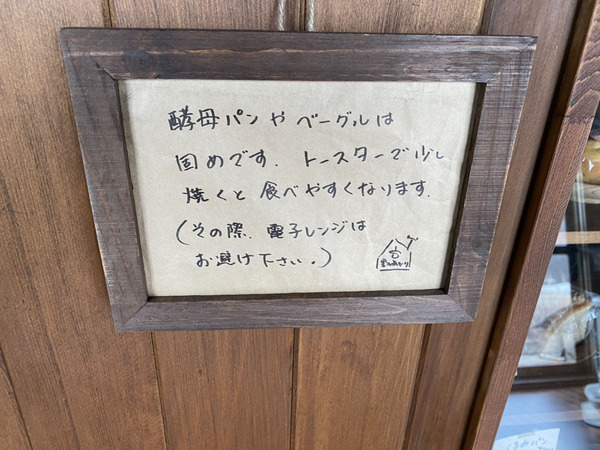 酵母パンやベーグルは
固めです. トースターで少し
焼くと食べやすくなります.
(その際、電子レンジは
お避け下さい。)